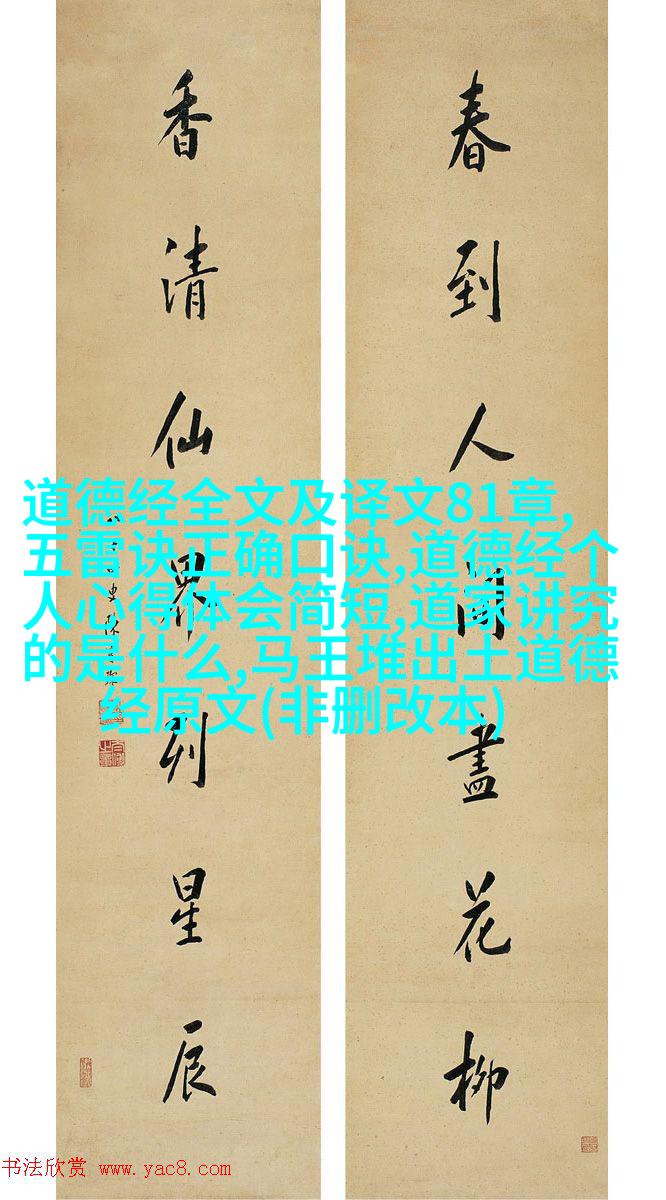 春到人間盡花柳
香清仙界列星辰
道德经全文及译文81章,
五雷诀正确口诀,道德经个
人心得体会简短,道家讲究
的是什么,马王堆出土道德
经原文(非删改本)
书法欣赏 www.yac8.com